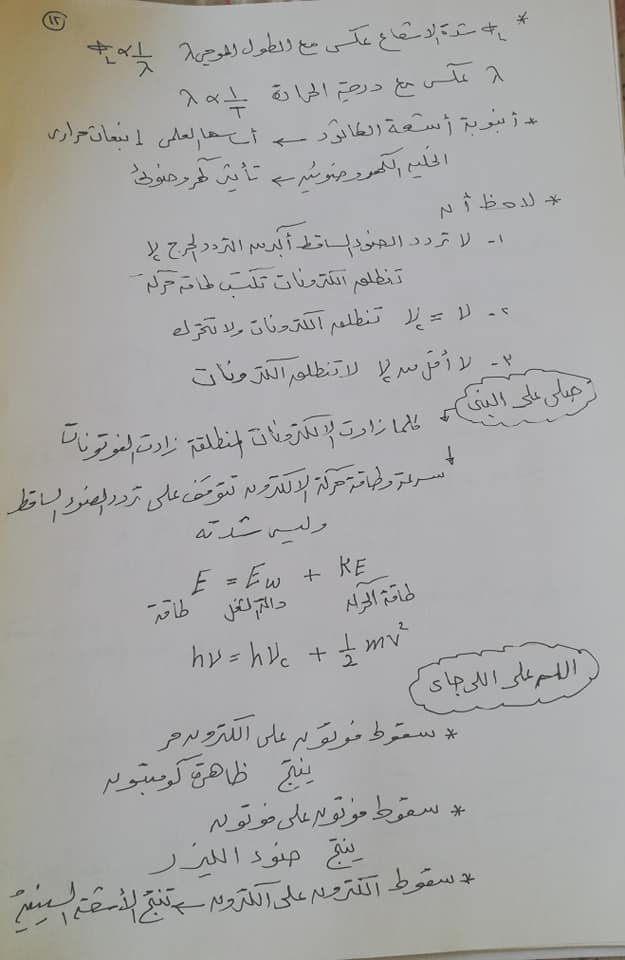 ١٢
* ɸL شدة الاشعاع عكسى مع الطول الموجى λ ɸL ∝ 1/λ
λ عكسى مع درجة الحرارة λ ∝ 1/T
* أنبوبة أشعة الكاثود ← أساسها العلمى انبعاث حرارى
الخليه الكهروضوئيه ← تأثير كهروضوئى
* لاحظ أن
١- ν تردد الضوء الساقط أكبر من التردد الحرج νc
تنطلق الكترونات تكتسب طاقة حركة
٢- ν = νc تنطلق الكترونات ولا تتحرك
٣- ν أقل من νc لا تنطلق الكترونات
صلى على النبى
↓ كلما زادت الالكترونات المنطلقة زادت الفوتونات
↓ سرعة وطاقة حركة الالكترون تتوقف على تردد الضوء الساقط
وليس شدته
E = Ew + KE
طاقة دالة الشغل طاقة الحركة
hν = hνc + ½ mv²
اللهم على اللى جاى
* سقوط فوتون على الكترون حر
ينتج ظاهرة كومبتون
* سقوط فوتون على فوتون
ينتج ضوء الليزر
* سقوط الكترون على الكترون ← تنتج الأشعة السينية